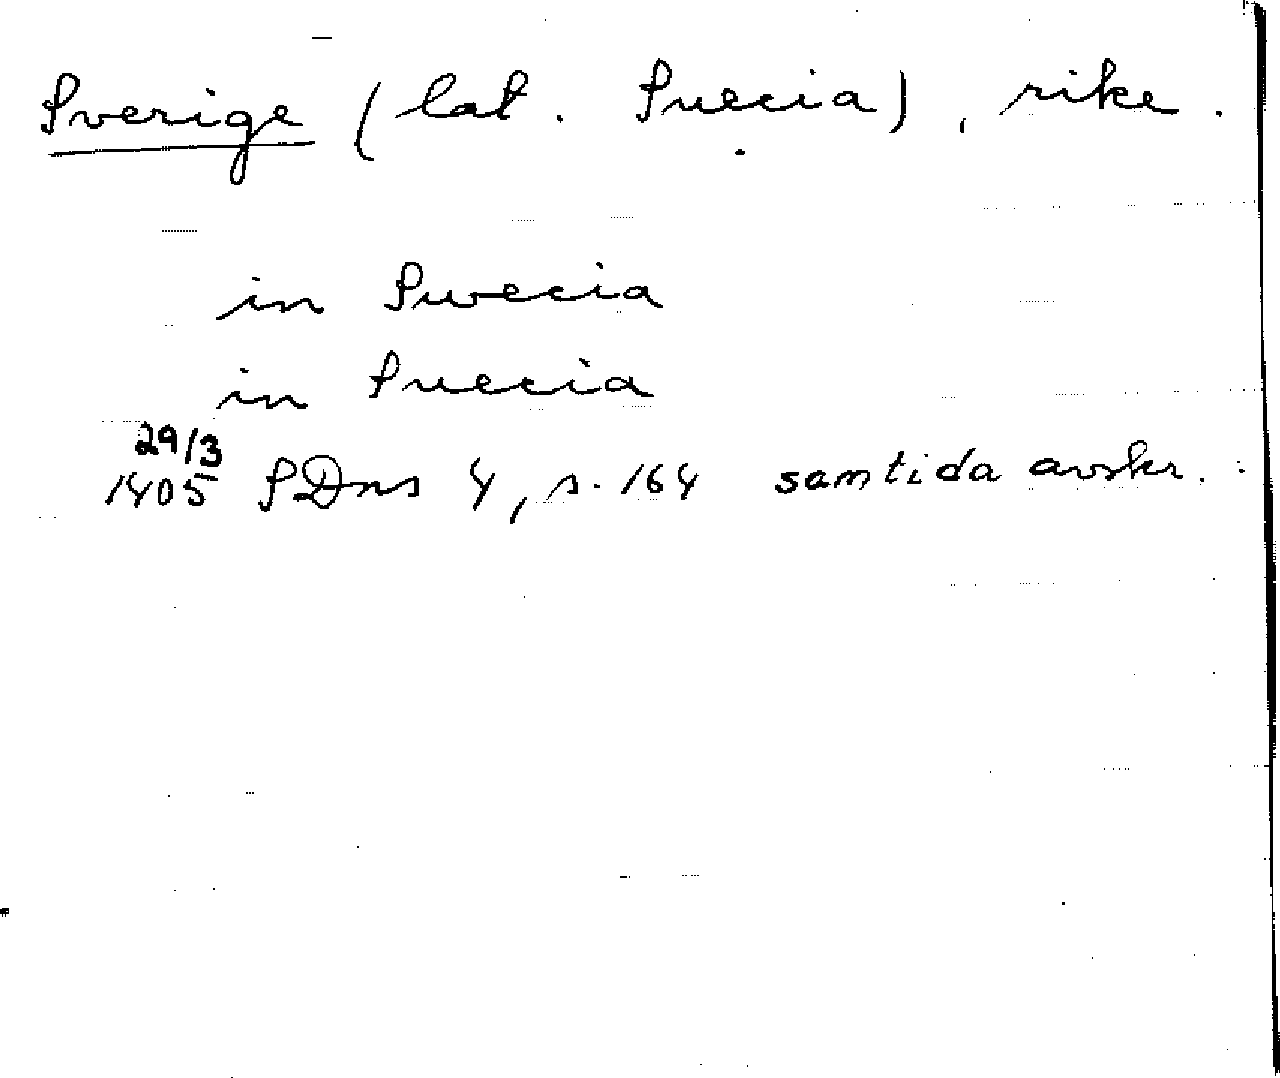 Sverige (lat. Suecia), rike.
in Swecia
in Suecia
29/3
1405 SDns 4, s. 164 samtida avskr.